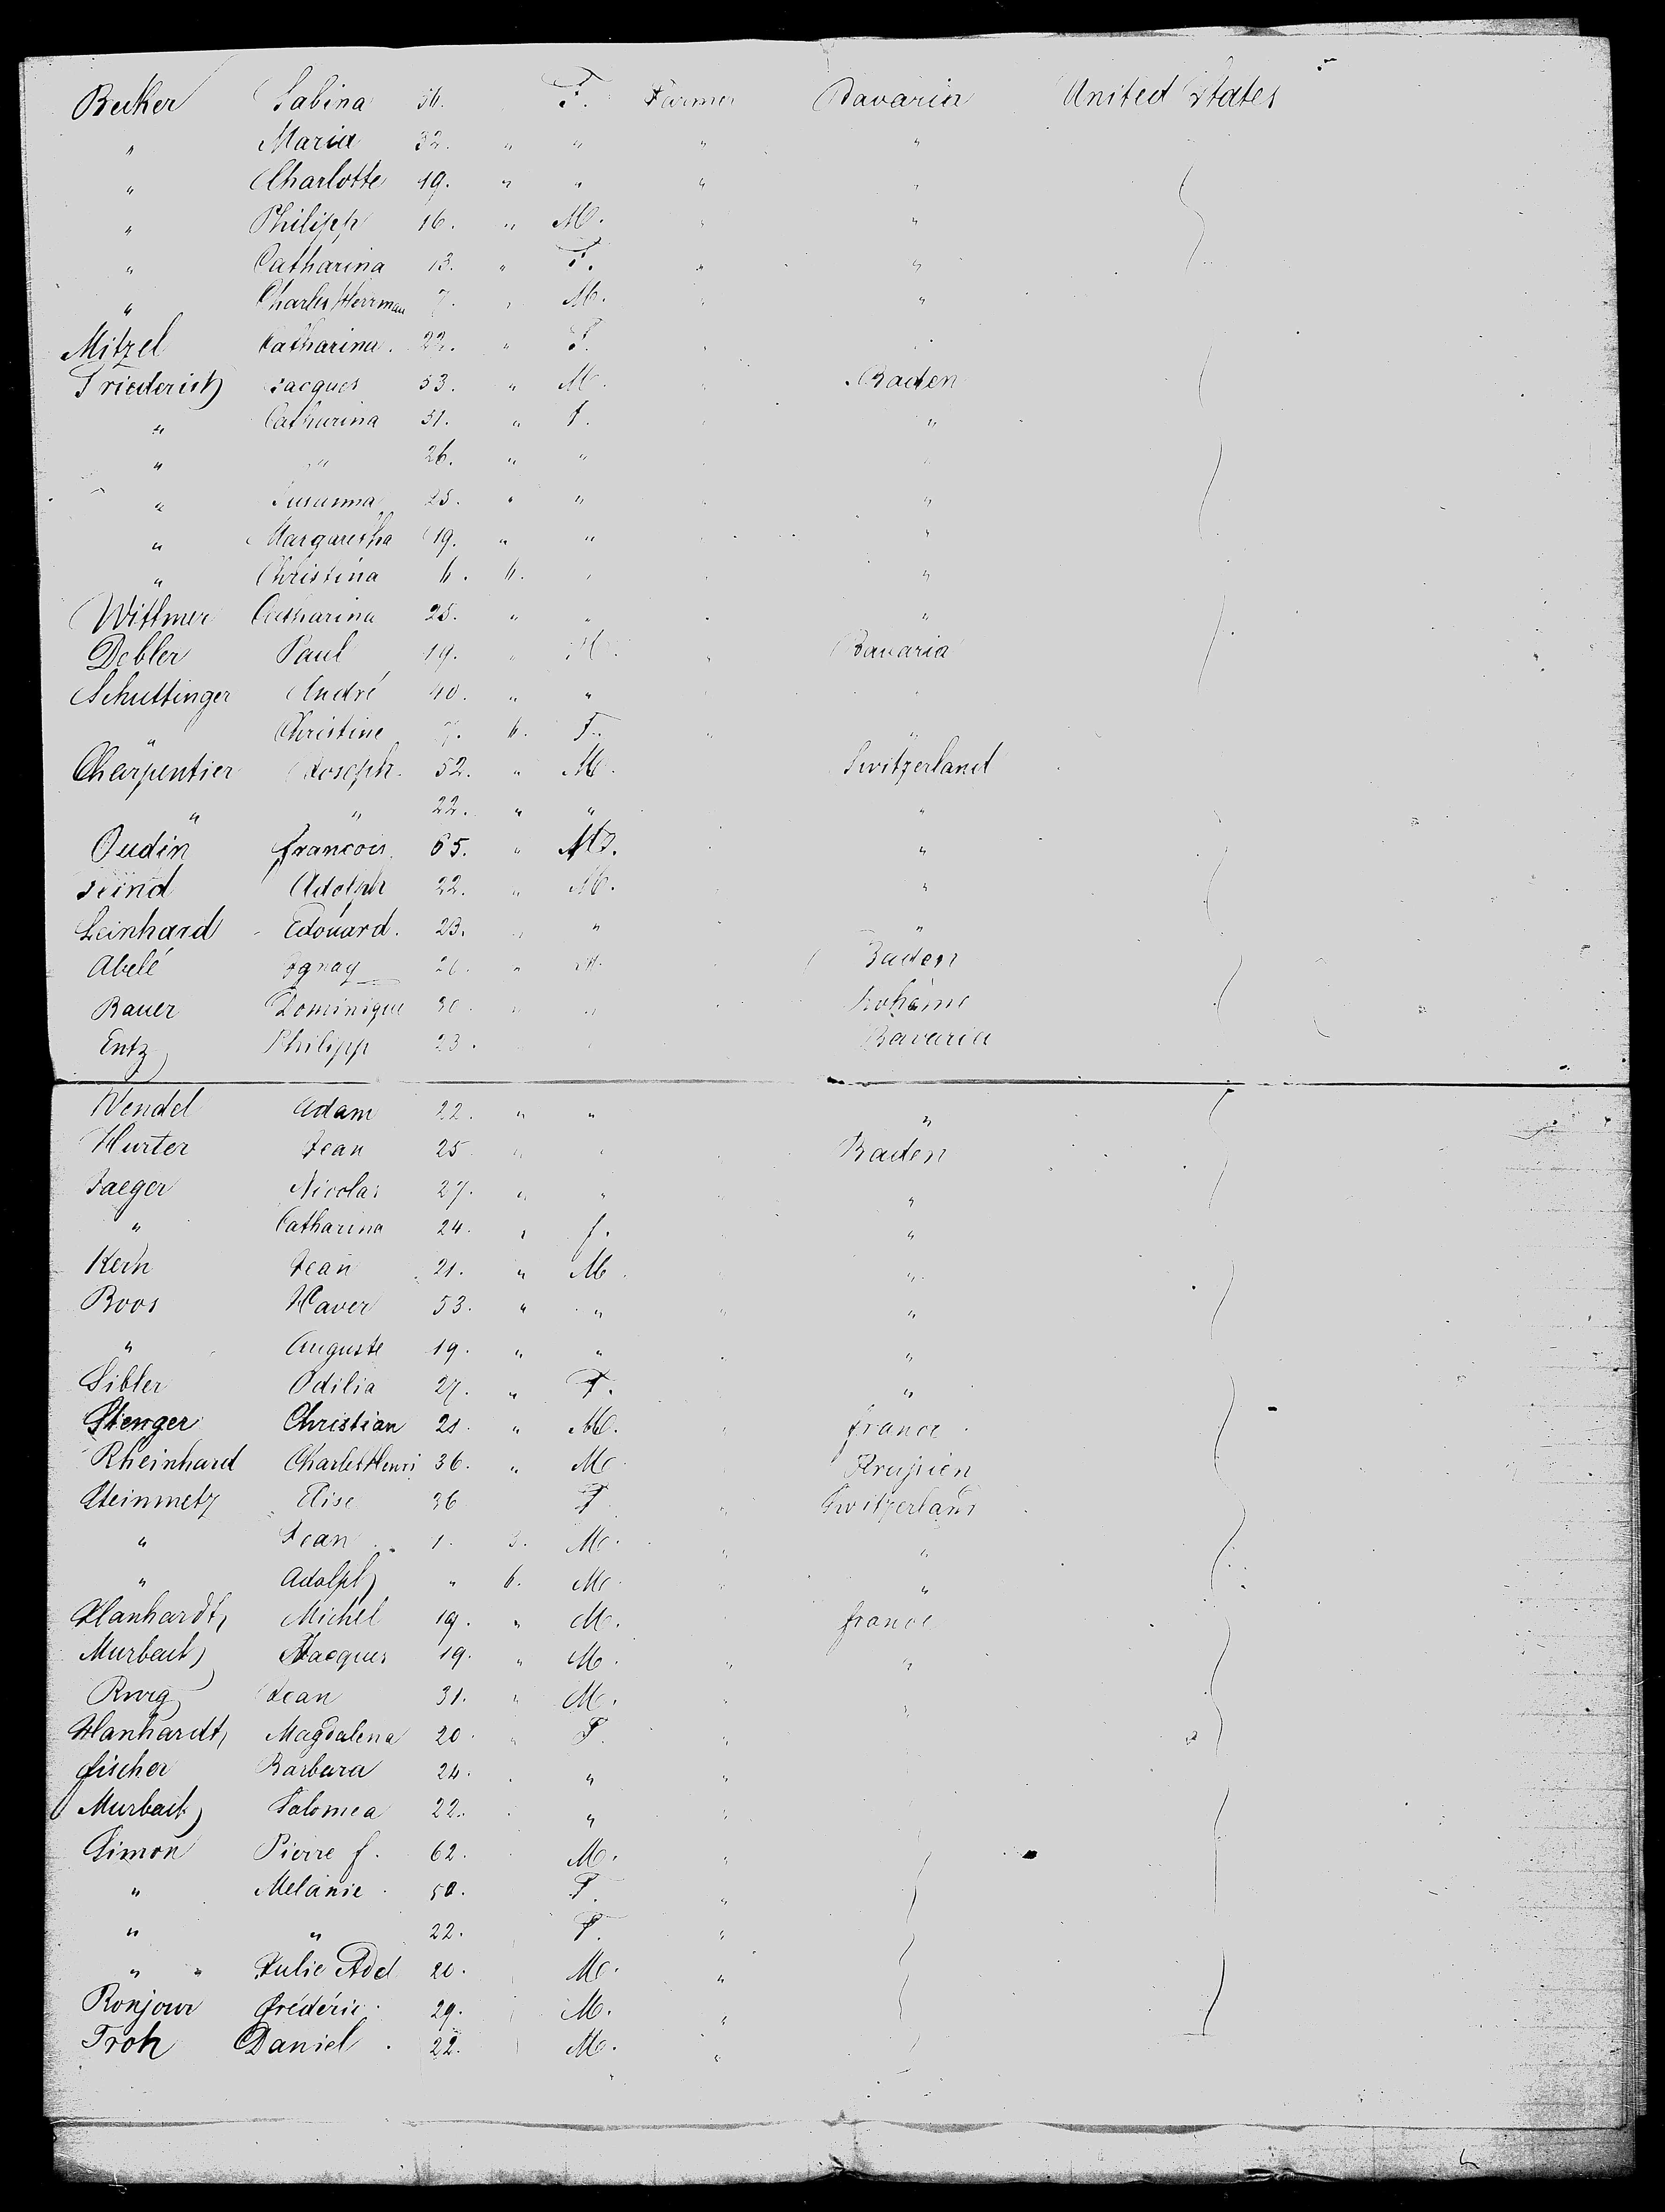 Becker Sabina 36. F. Farmer Bavaria United States
" Maria 32. " " " "
" Charlotte 19. " " " "
" Philipp 16. " M. " "
" Catharina 13. " F. " "
" Charles Herrman 7. " M. " "
Mitzel Catharina. 22. " F. " "
Friederich Jacques 53. " M. " Baden
" Catharina 51. " F. "
" " 26. " "
" Susanna 25. " " "
" Margaretha 19. " " "
" Christina 6. 6. " "
Wittmer Catharina 25. " " "
Debler Paul 19. " M. " Bavaria
Schuttinger André 40. " "
" Christine 7. 6. F. " "
Charpentier Joseph. 52. " M. Switzerland
" " 22. " " "
Oudin francois 65. " M. "
Adolph 22. " M. "
Leinhard Edouard. 23. " " "
Abelé Ignaz " M. Baden
Bauer Dominique 30 " " Bohême
Entz Philipp 23. Bavaria
Wendel Adam 22. " " "
Hurter Jean 25 " " Baden
Jaeger Nicolas 27. " " "
" Catharina 24. " f. "
Kern Jean 21. " M. "
Boos Xaver 53. " " " "
" Auguste 19. " " "
Sibler Odilia 27. " F. "
Stenger Christian 21. " M. france
Rheinhard Charles Henri 36. " M. Prussien
Steinmetz Elise 36 F " Switzerland
" Jean 1. 3. M. " "
" Adolph " 6. M. " "
Hanhardt, Michel 19. " M. france
Murbach Jacques 19. " M. " "
Jean 31. " M. " "
Hanhardt, Magdalena 20. " F. "
fischer Barbara 24. " "
Murbach Salomea 22. " "
Simon Pierre f. 62. M. "
" Melanie. 50. F. "
" " 22. F. "
" " Julie Adel 20. M. "
Bonjour frédéric. 29. M. "
Troh Daniel. 22. M. "